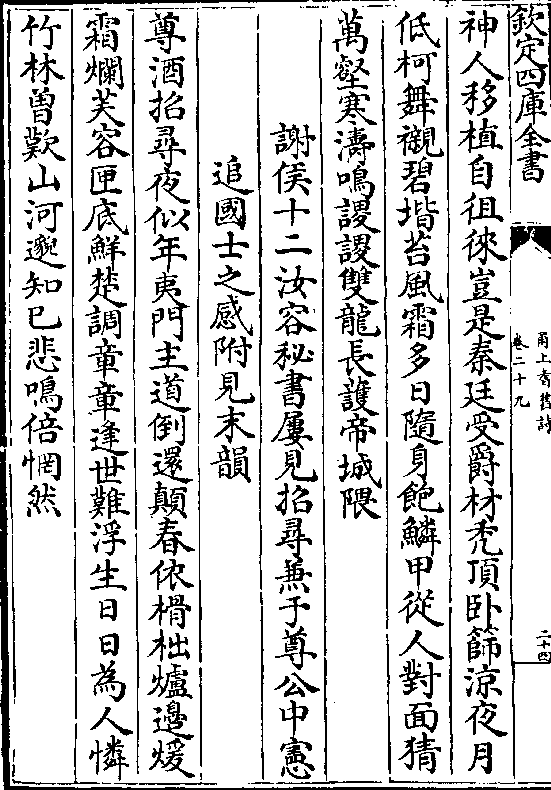 欽定四庫全書
甬上耆舊詩
卷二十九
二十四
神人移植自徂徠豈是秦廷受爵材禿頂卧篩涼夜月
低柯舞襯碧堦苔風霜多日隨身飽鱗甲從人對面猜
萬壑寒濤鳴謖謖雙龍長護帝城隈
謝侯十二汝容秘書屢見招尋兼于尊公中憲
追國士之感附見末韻
尊酒招尋夜似年夷門主道倒還顛春依榾柮爐邊煖
霜爛芙容匣底鮮楚調章章逢世難浮生日日為人憐
竹林曽歎山河邈知已悲鳴倍惘然